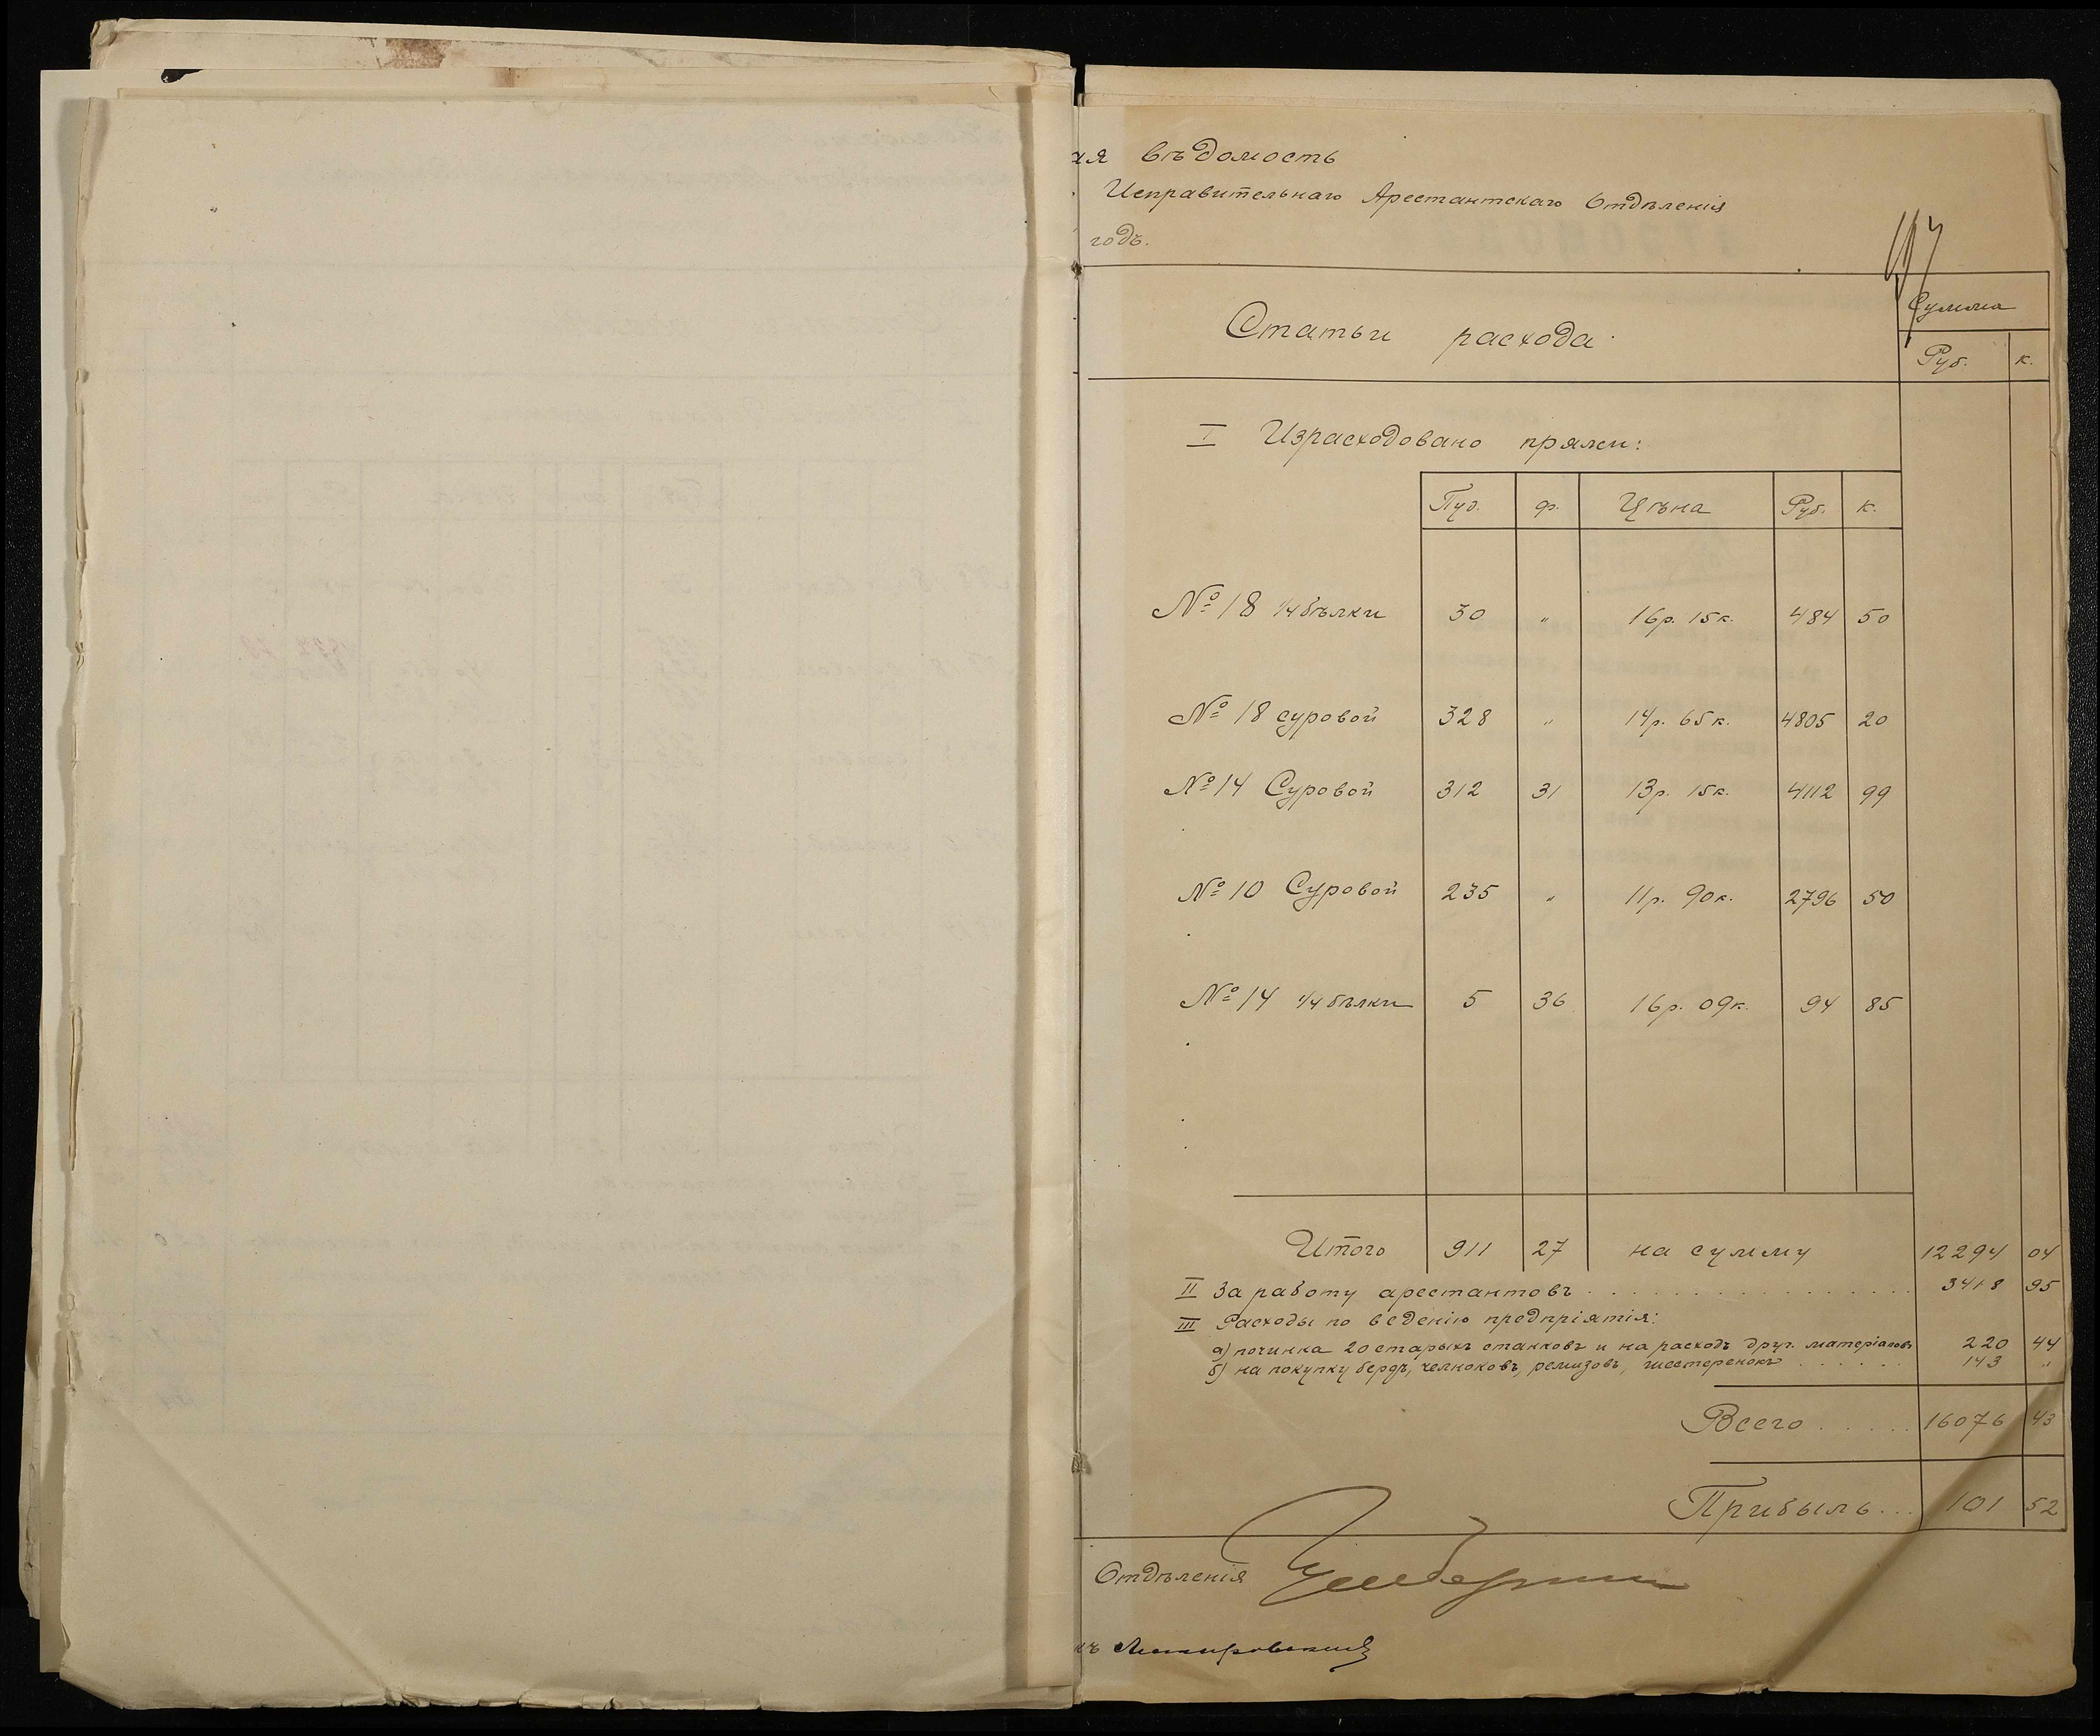 ая вѣдомость
Исправительнаго Арестантскаго Отдѣленія
годъ.
Статьи расхода.
Сумма
Руб. к.
I Израсходовано пряжи:
Пуд. ф. Цѣна Руб. к.
№ 18 1/4 бѣлки 30 " 16р. 15к. 484 50
№ 18 суровой 328 " 14р. 65к. 4805 20
№ 14 Суровой 312 31 13р. 15к. 4112 99
№ 10 Суровой 235 " 11р. 90к. 2796 50
№ 14 1/4 бѣлки 5 36 16р. 09к. 94 85
Итого 911 27 на сумму 12294 04
II За работу арестантовъ . . . . . . . . . . . . . . . . 3418 95
III Расходы по веденію предпріятія:
а) починка 20 старыхъ станковъ и на расходъ друг. матеріаловъ 220 44
б) на покупку бердъ, челноковъ, ремизовъ, шестеренокъ . . . . . . 143 "
Всего . . . . . 16076 43
Прибыль . . . 101 52
Отдѣленія
къ